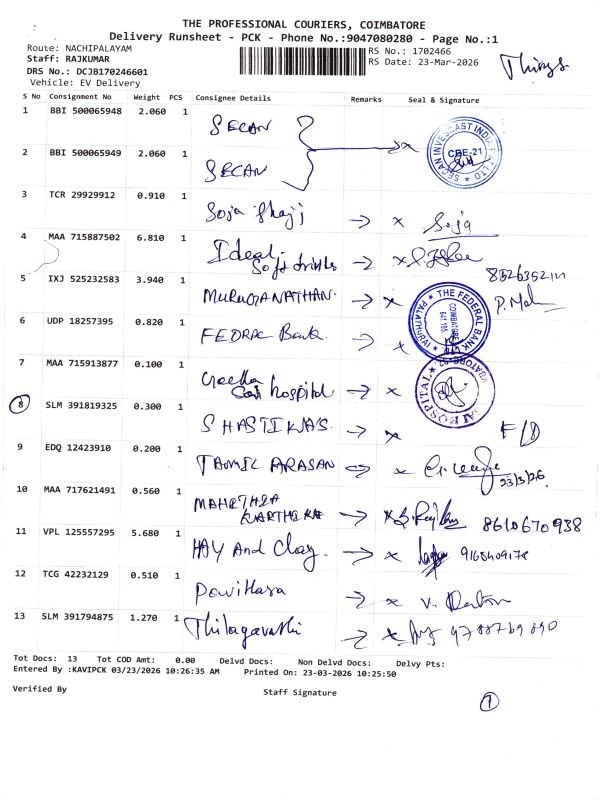 THE PROFESSIONAL COURIERS, COIMBATORE
Delivery Runsheet - PCK - Phone No.:9047080280 - Page No.:1
Route: NACHIPALAYAM
RS No.: 1702466
Staff: RAJKUMAR
RS Date: 23-Mar-2026
Things
DRS No.: DCJB170246601
Vehicle: EV Delivery
S No Consignment No Weight PCS Consignee Details Remarks Seal & Signature
1 BBI 500065948 2.060 1 SECAN
2 BBI 500065949 2.060 1 SECAN
SECAN INVESCAST INDIA PVT LTD CBE-21
3 TCR 29929912 0.910 1 Soja Shaji x Soja
4 MAA 715887502 6.810 1 Ideal Soft drinks x
5 IXJ 525232583 3.940 1 MURUGANATHAN x
6 UDP 18257395 0.820 1 FEDRAL Bank x
THE FEDERAL BANK LTD COIMBATORE
7 MAA 715913877 0.100 1 Geetha Sai hospital x
HOSPITAL
8 SLM 391819325 0.300 1 x F/D
9 EDQ 12423910 0.200 1 TAMIL ARASAN x
23/3/26
10 MAA 717621491 0.560 1 KARTHIKA x 8610670938
11 VPL 125557295 5.680 1 HAY And Clay x
12 TCG 42232129 0.510 1 Pavithara x
13 SLM 391794875 1.270 1 Thilagavathi x
Tot Docs: 13 Tot COD Amt: 0.00 Delvd Docs: Non Delvd Docs: Delvy Pts:
Entered By :KAVIPCK 03/23/2026 10:26:35 AM Printed On: 23-03-2026 10:25:50
Verified By Staff Signature
1